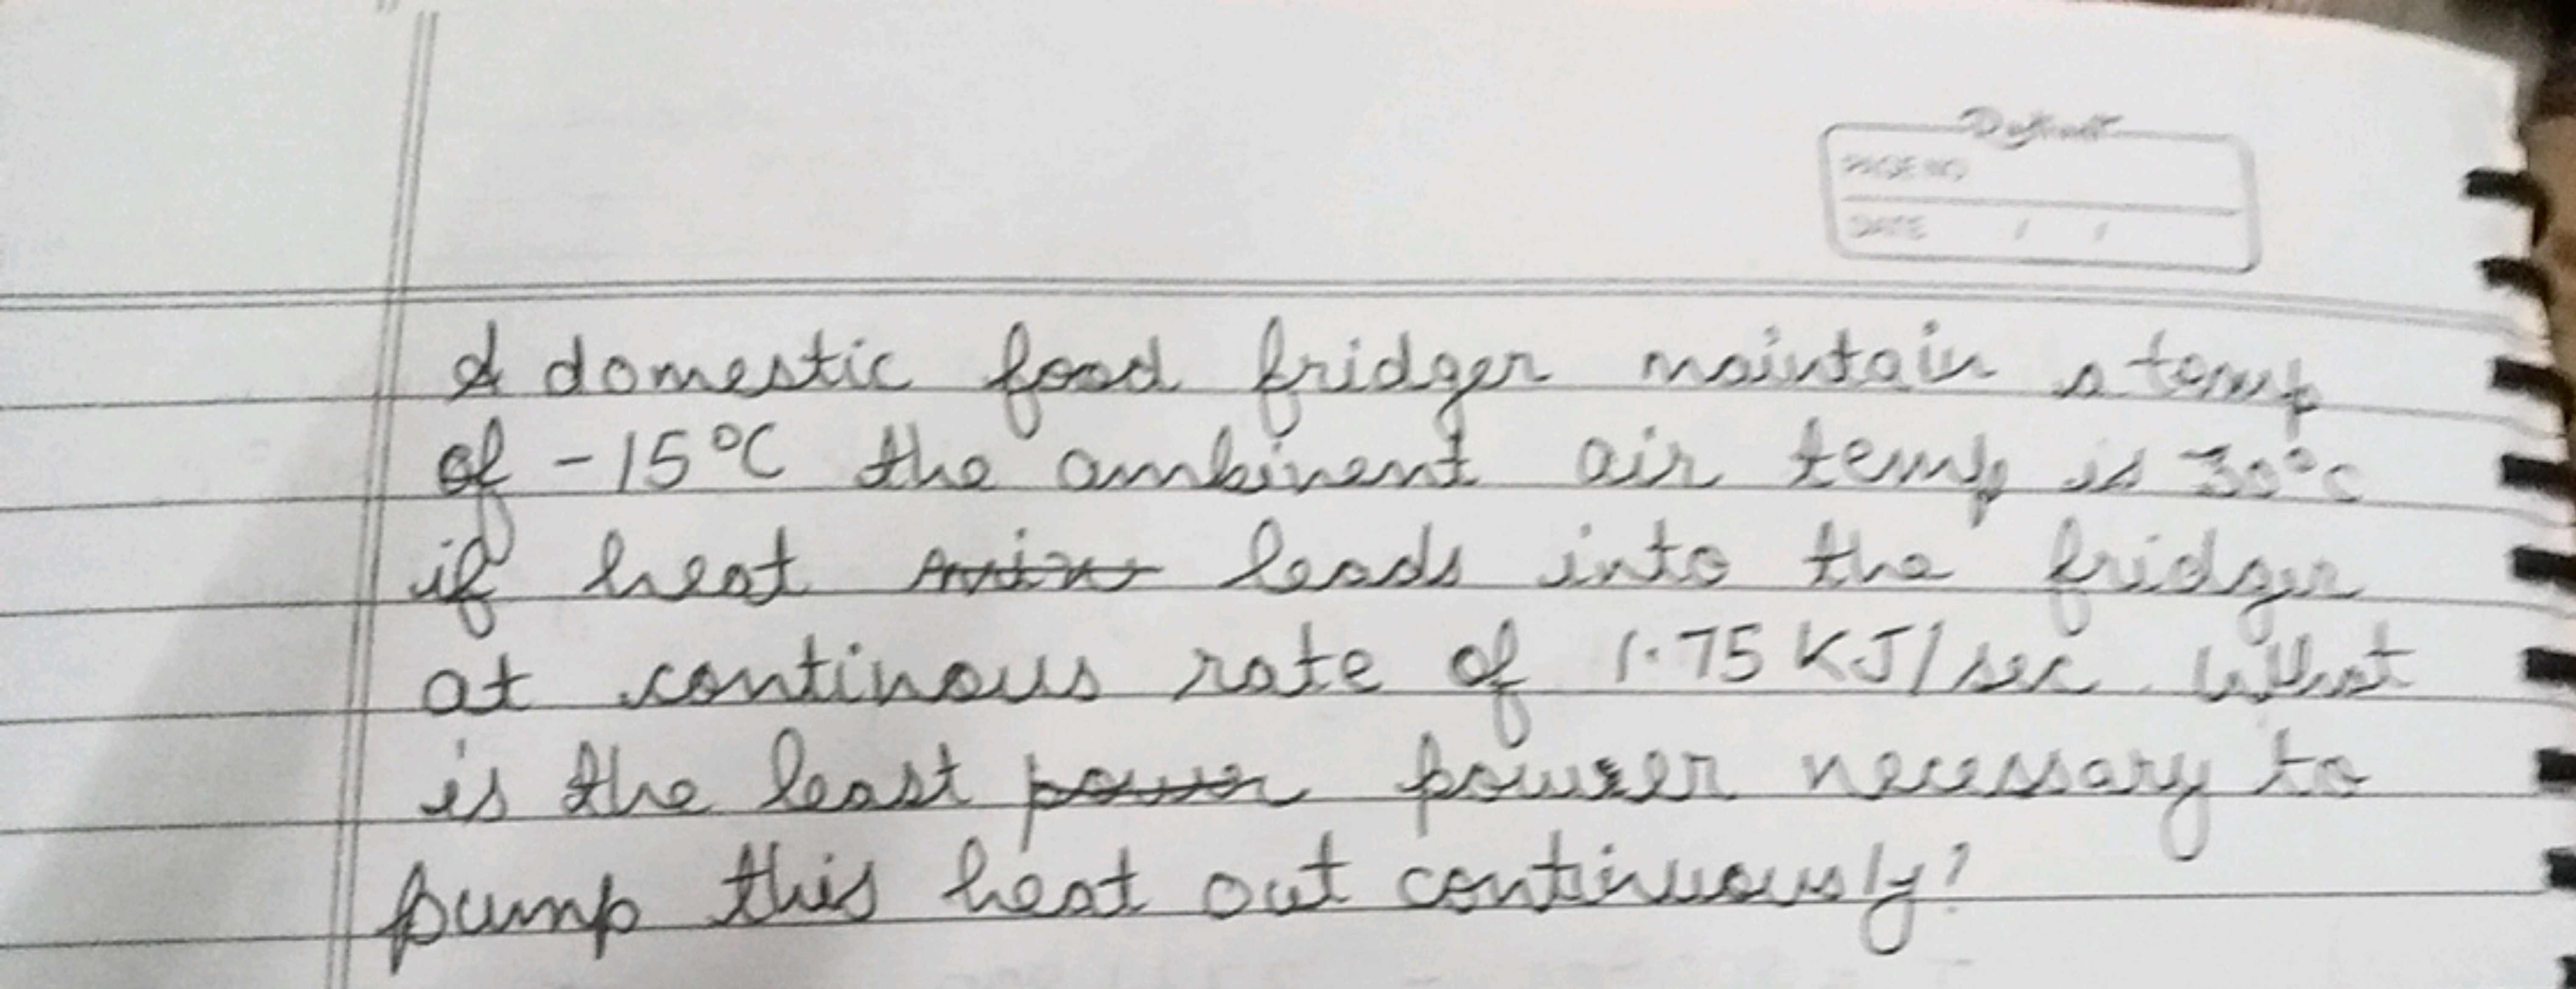 PAGE NO
DATE / /
A domestic food fridger maintain a temp
of -15°C the ambinent air temp is 30°C
if heat leads into the fridger
at continous rate of 1.75 KJ/sec. What
is the least power powrer necessary to
pump this heat out continuously?